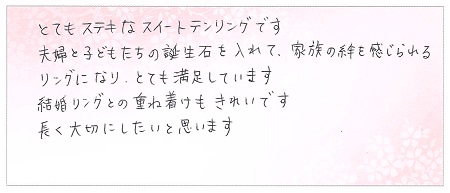 とてもステキなスイートテンリングです
夫婦と子どもたちの誕生石を入れて、家族の絆を感じられる
リングになり、とても満足しています
結婚リングとの重ね着けもきれいです
長く大切にしたいと思います